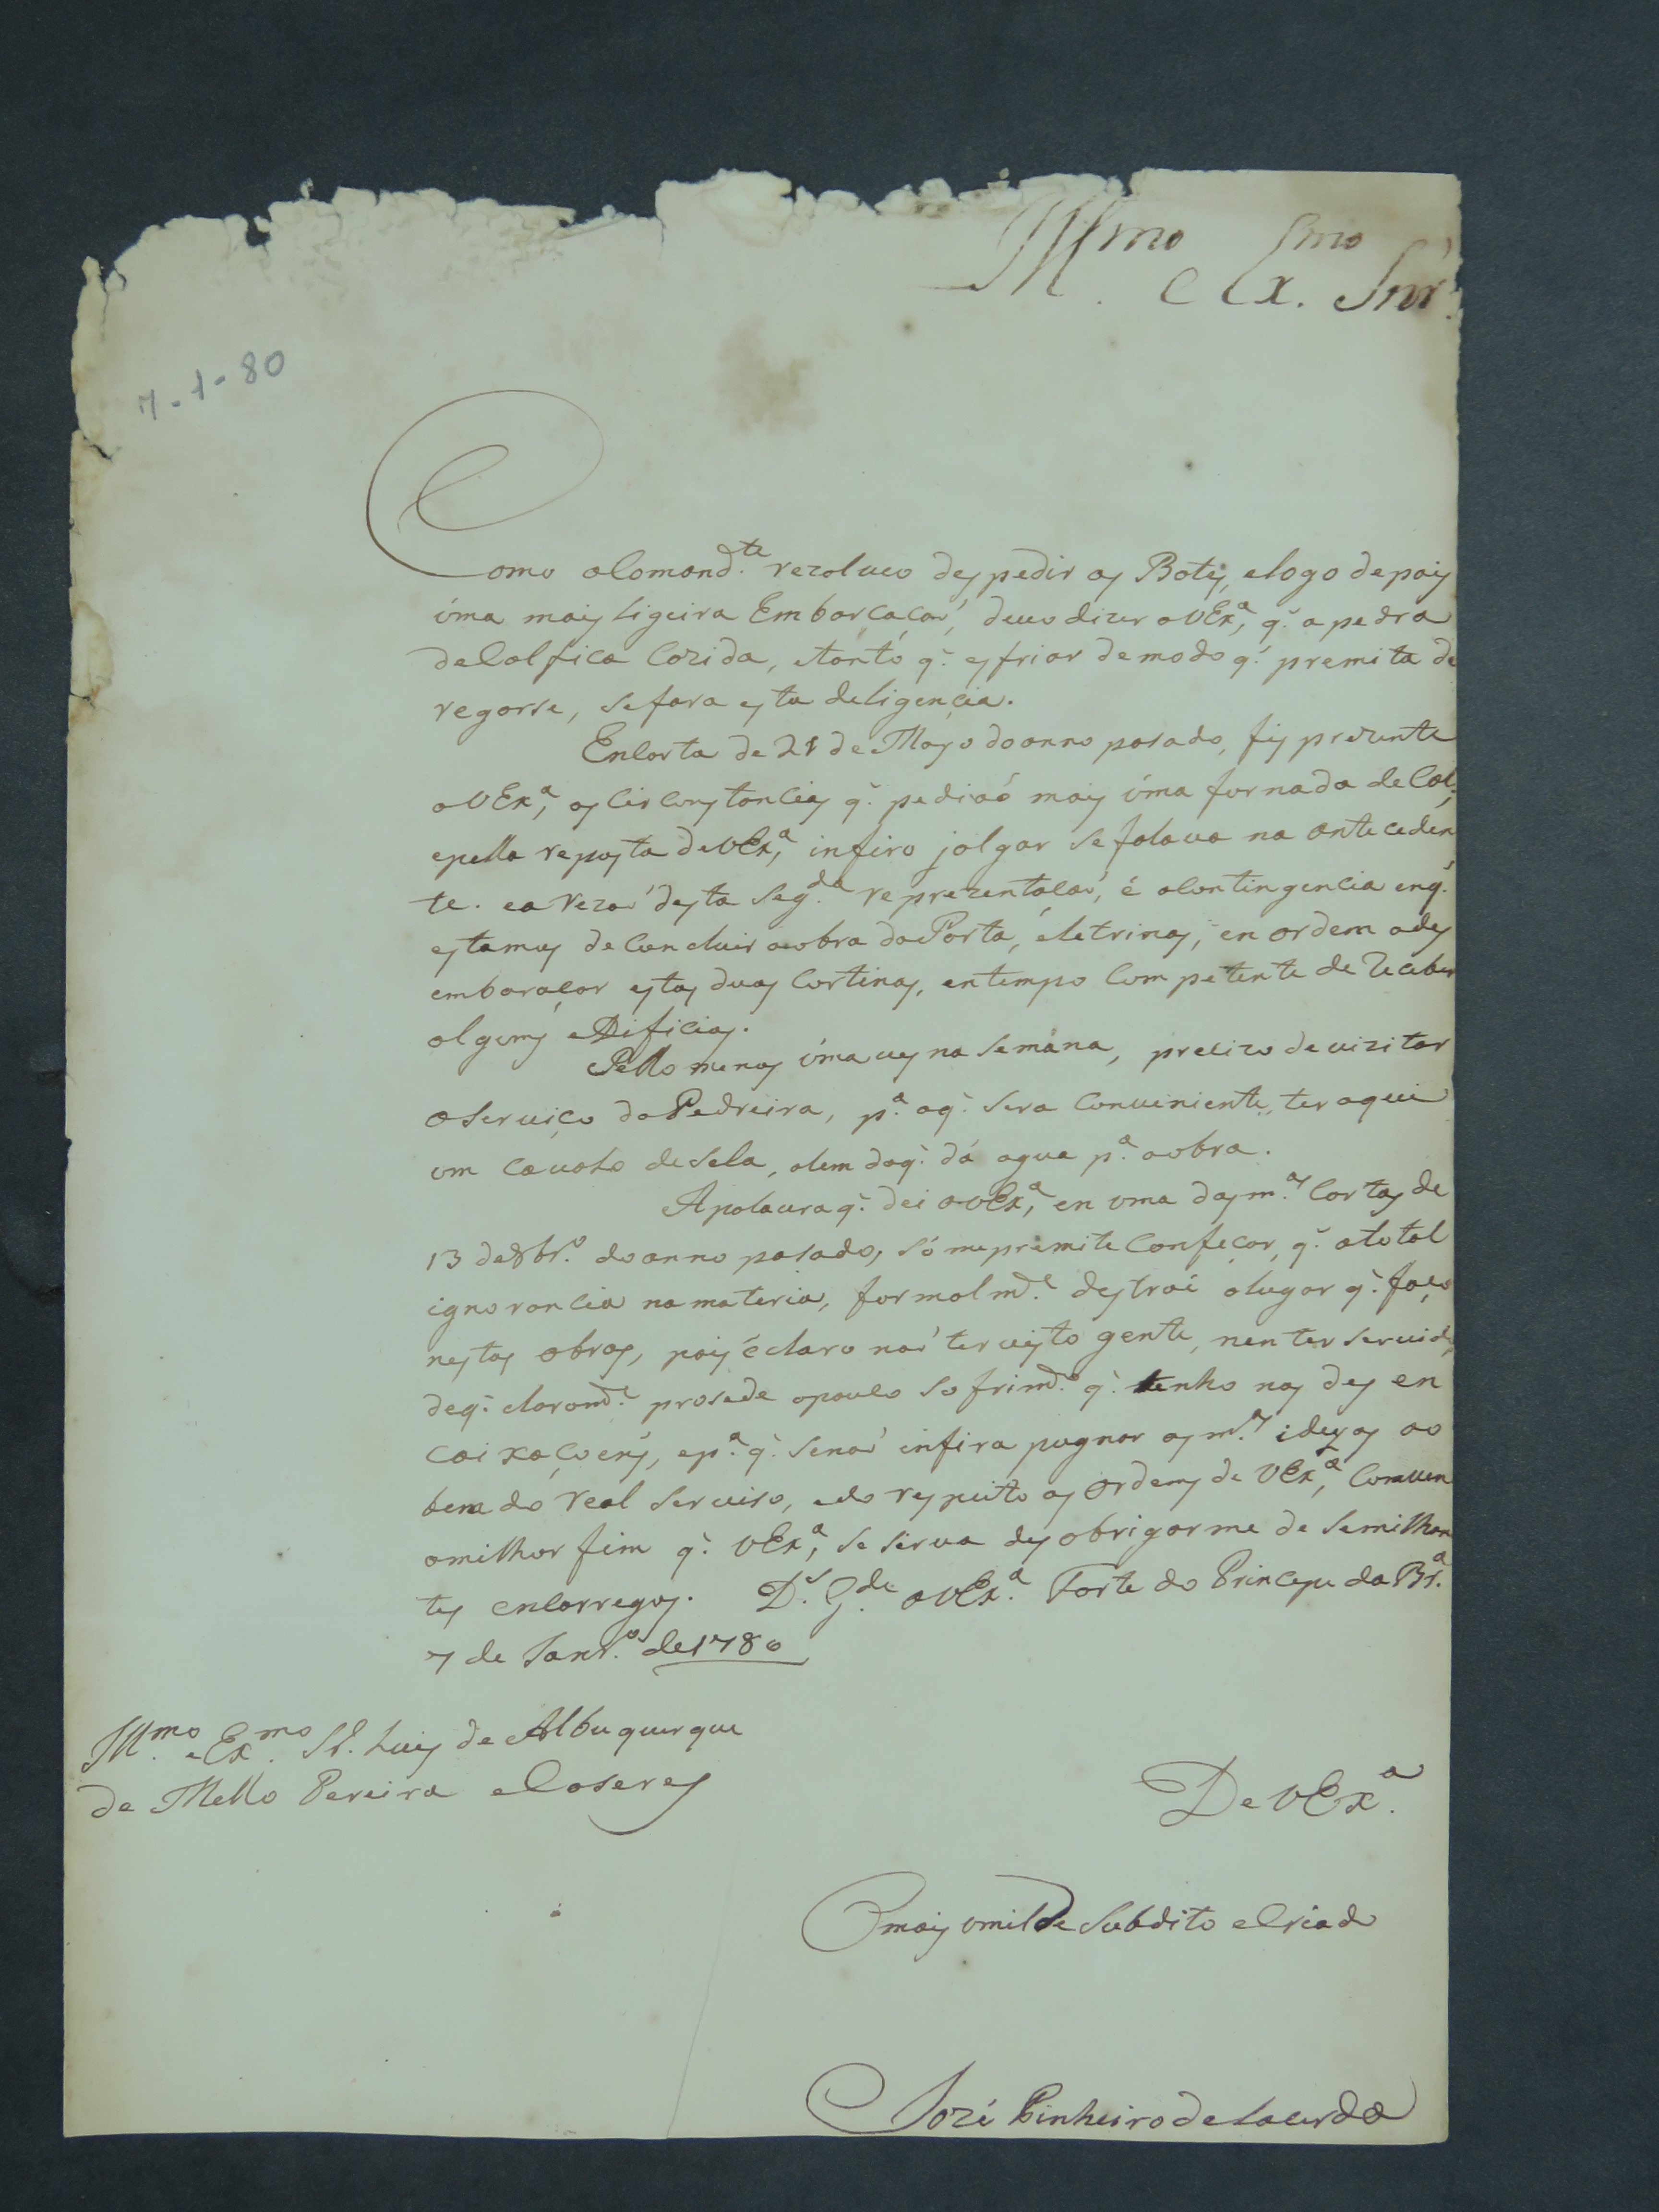 Illmo e Exmo Snr.
7-1-80
Como o Comond.te rezolueo despedir os Botes, e logo depois
úma mais ligeira Embarcacaó, deuo dizer a VExª, q̃. a pedra
de Cal fica Cozida, e tanto q̃. esfriar de modo q̃. premita de
regarse, se fara esta deligencia.
En Carta de 21 de Mayo do anno pasado, fis prezente
a VExª, as Circonstancias q̃. pediaó mais úma fornada de Cal,
e pella reposta de VExª, infiro jolgar se falaua na anteceden
te. e a rezaó desta seg.da reprezentacaó, é a Contingencia en q̃.
estamos de Concluir a obra da Porta, e letrinas, en ordem a des
embaraçar estas duas Cortinas, en tempo Competente de receber
algums edificios.
Pello menos úma ues na semána, precizo de uizitar
o seruiço da Pedreira, p.ª o q̃. sera Conueniente, ter aqui
um Caualo de sela, alem do q̃. dá agua p.ª a obra.
A palaura q̃. dei a VExª, en uma das m.as Cartas de
13 de 8br.º do anno pasado, só me premite Confeçar, q̃. a total
ignorancia na materia, formalm.e destroi o lugar q̃. faço
nestas obras, pois é claro naó ter uisto gente, nen ter seruido,
de q̃. claram.e prosede o pouco sofrim.º q̃. tenho nas des en
caixaçoens, e p.ª q̃. se naó infira pugnar as m.as ideyas ao
bem do real seruiso, e do respeito as ordens de VExª, Comuem
o milhor fim q̃. VExª, se sirua desobrigarme de semilhan
tes encarregos. D.s G.de a VEx.ª Forte do Princepe da Br.ª
7 de Janr.º de 1780
Illmo e Exmo Sr. Luis de Albuquerque
de Mello Pereira e Caseres
De VEx.ª
O mais umilde Subdito e Criado
Jozé Pinheiro de Lacerda